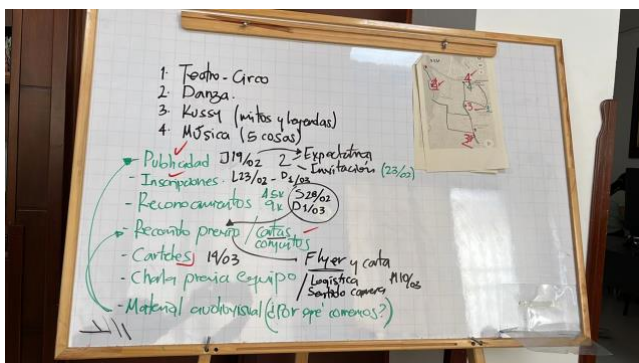 1. Teatro-Circo
2. Danza.
3. Kussy (mitos y leyendas)
4. Música (5 cosas)
- Publicidad J19/02 2 Expectativa
- Invitación (23/02)
- Inscripciones. L23/02 - D1/03
- Reconocimientos 45k S28/02
9k D1/03
- Recorrido previo / cartas
conjuntos
- Carteles 19/03 Flyer y carta
- Charla previa equipo / Logística M10/03
Sentido carrera
- Material audiovisual (¿Por qué corremos?)